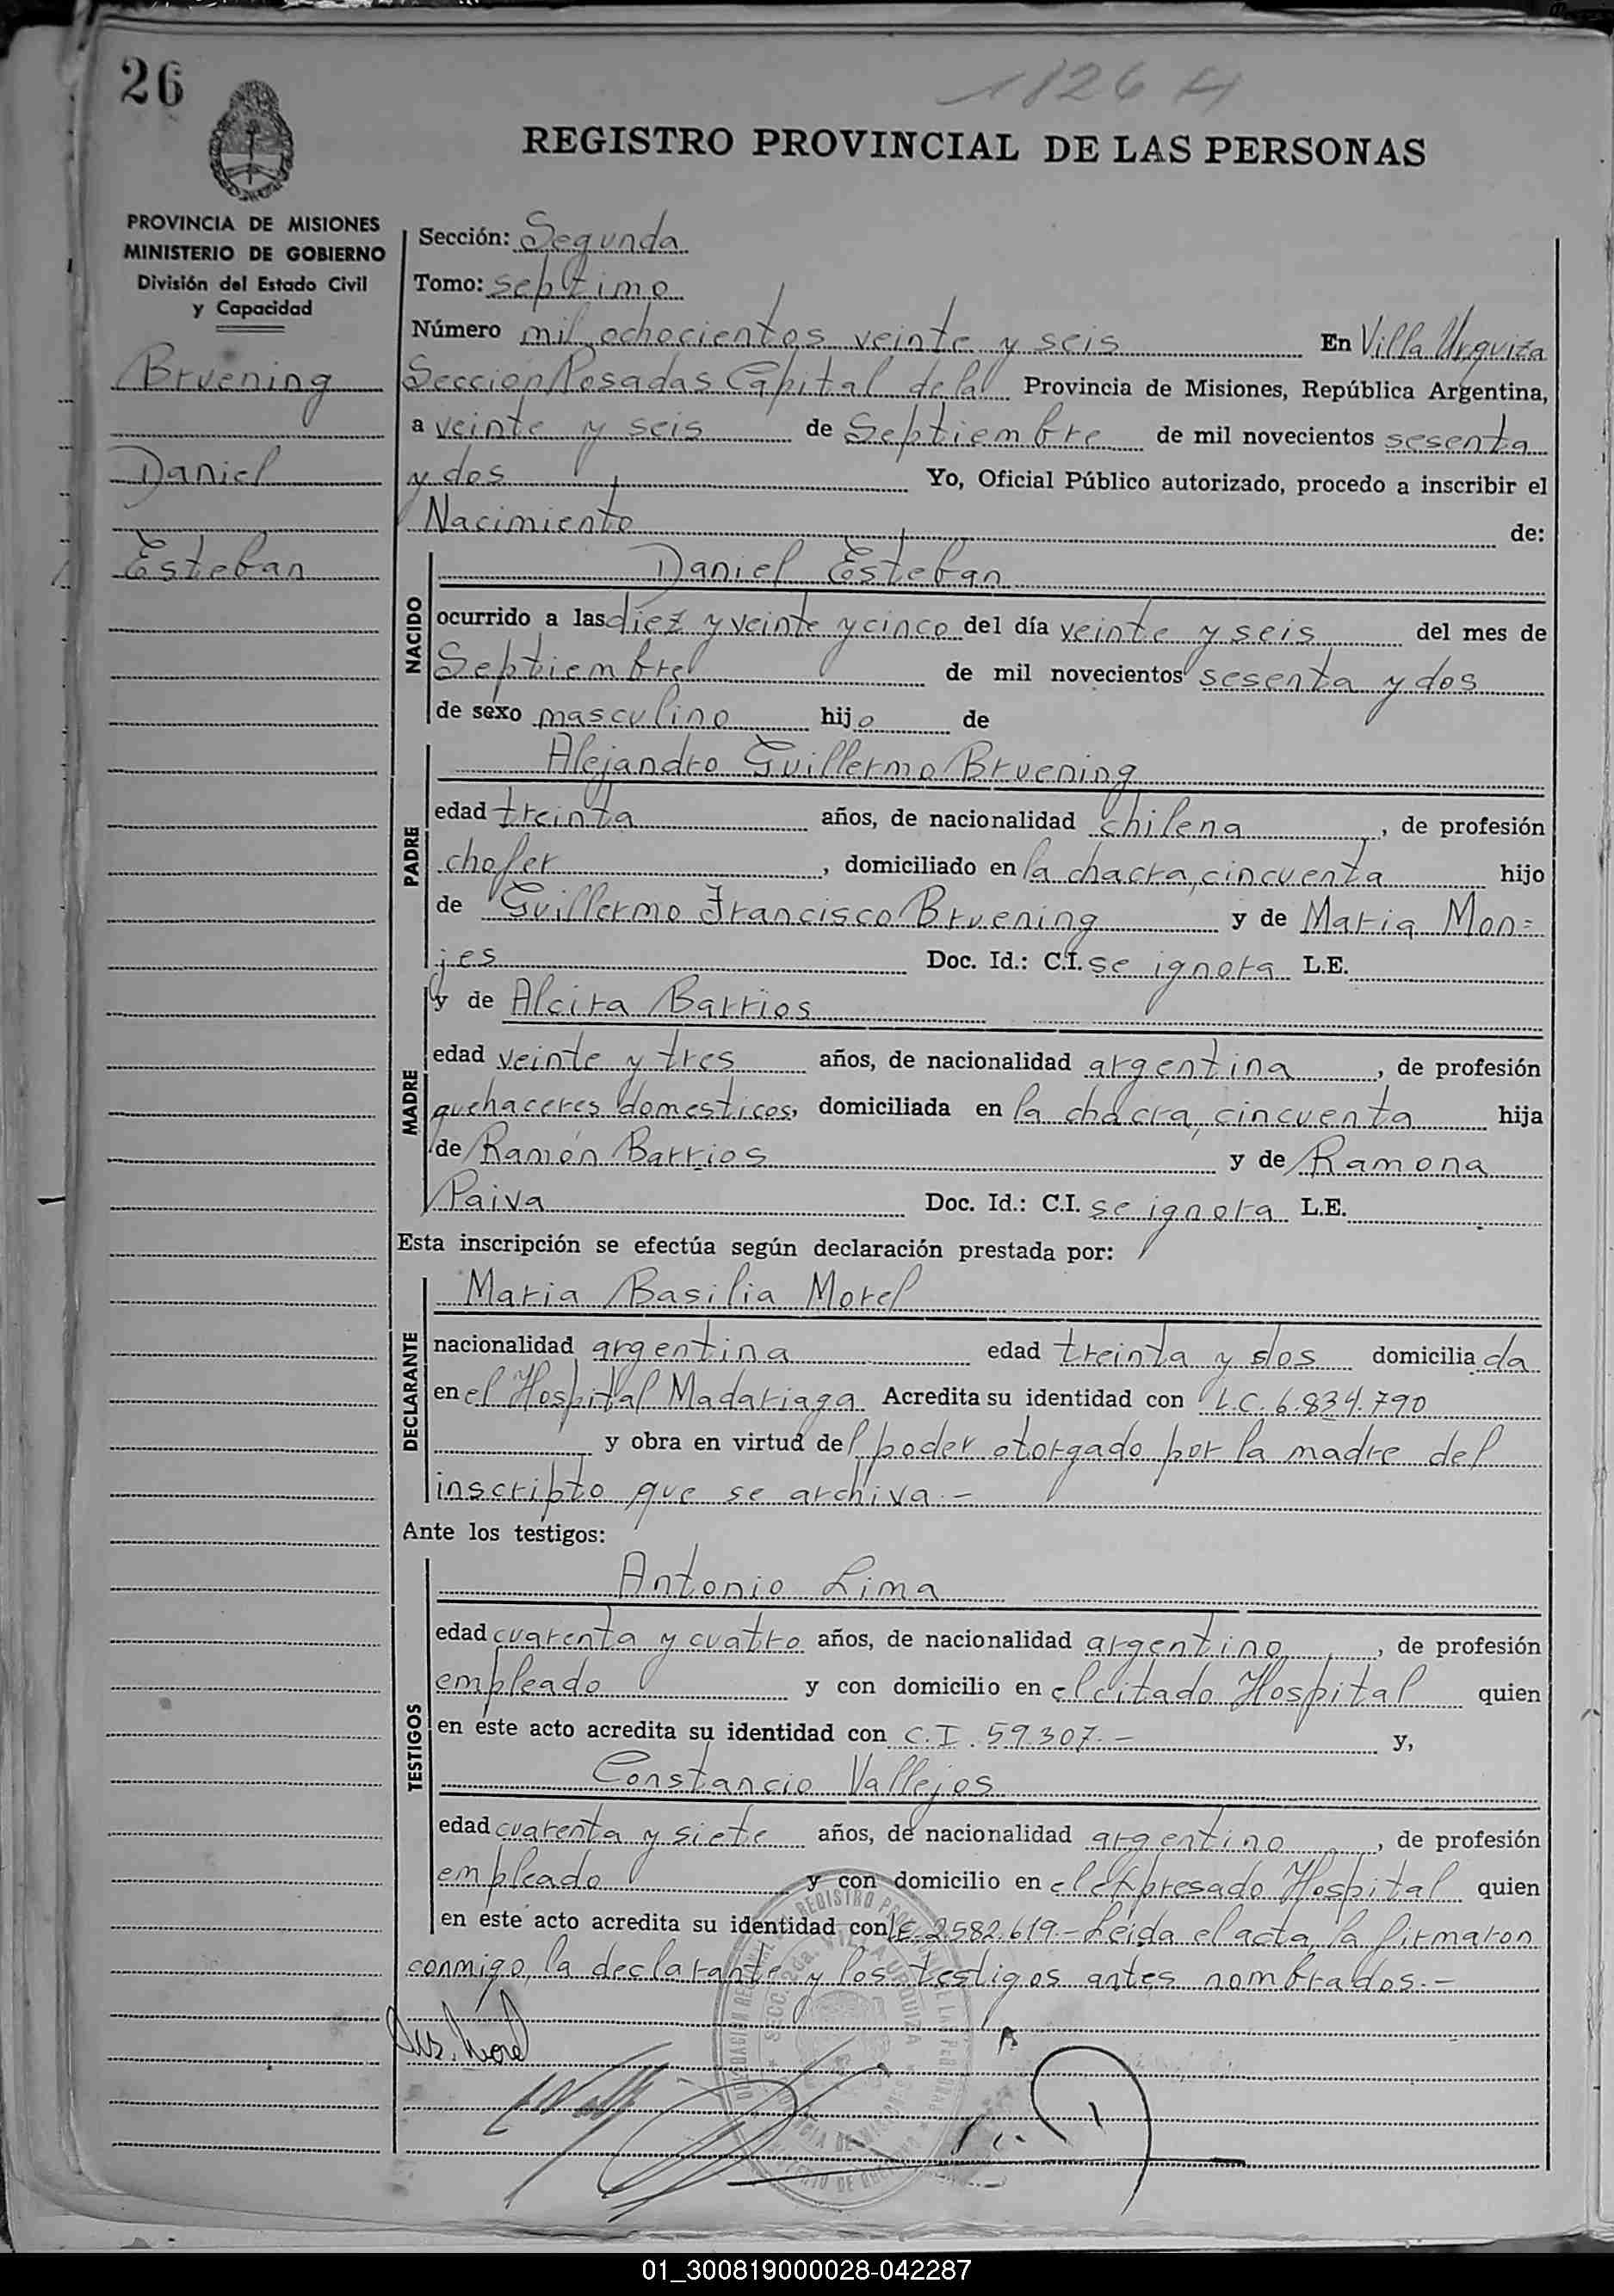 26
1826 H
REGISTRO PROVINCIAL DE LAS PERSONAS
PROVINCIA DE MISIONES
MINISTERIO DE GOBIERNO
División del Estado Civil
y Capacidad
Bruening
Daniel
Esteban
Sección: Segunda
Tomo: septimo
Número mil ochocientos veinte y seis En Villa Urquiza
Seccion Posadas Capital de la Provincia de Misiones, República Argentina,
a veinte y seis de Septiembre de mil novecientos sesenta
y dos Yo, Oficial Público autorizado, procedo a inscribir el
Nacimiento de:
NACIDO
Daniel Esteban
ocurrido a las diez y veinte y cinco del día veinte y seis del mes de
Septiembre de mil novecientos sesenta y dos
de sexo masculino hijo de
PADRE
Alejandro Guillermo Bruening
edad treinta años, de nacionalidad chilena, de profesión
chofer, domiciliado en la chacra, cincuenta hijo
de Guillermo Francisco Bruening y de Maria Mon=
jes Doc. Id.: C.I. se ignora L.E.
MADRE
y de Alcira Barrios
edad veinte y tres años, de nacionalidad argentina, de profesión
quehaceres domesticos, domiciliada en la chacra, cincuenta hija
de Ramón Barrios y de Ramona
Paiva Doc. Id.: C.I. se ignora L.E.
Esta inscripción se efectúa según declaración prestada por:
DECLARANTE
Maria Basilia Morel
nacionalidad argentina edad treinta y dos domiciliada
en el Hospital Madariaga Acredita su identidad con L.C. 6.834.790
y obra en virtud del poder otorgado por la madre del
inscripto que se archiva.-
Ante los testigos:
TESTIGOS
Antonio Lima
edad cuarenta y cuatro años, de nacionalidad argentino, de profesión
empleado y con domicilio en el citado Hospital quien
en este acto acredita su identidad con C.I. 59.307.- y,
Constancio Vallejos
edad cuarenta y siete años, de nacionalidad argentino, de profesión
empleado y con domicilio en el expresado Hospital quien
en este acto acredita su identidad con LE. 2582.619.- Leida el acta, la firmaron
conmigo, la declarante y los testigos antes nombrados.-
SECC. 2da. VILLA URQUIZA
01_300819000028-042287